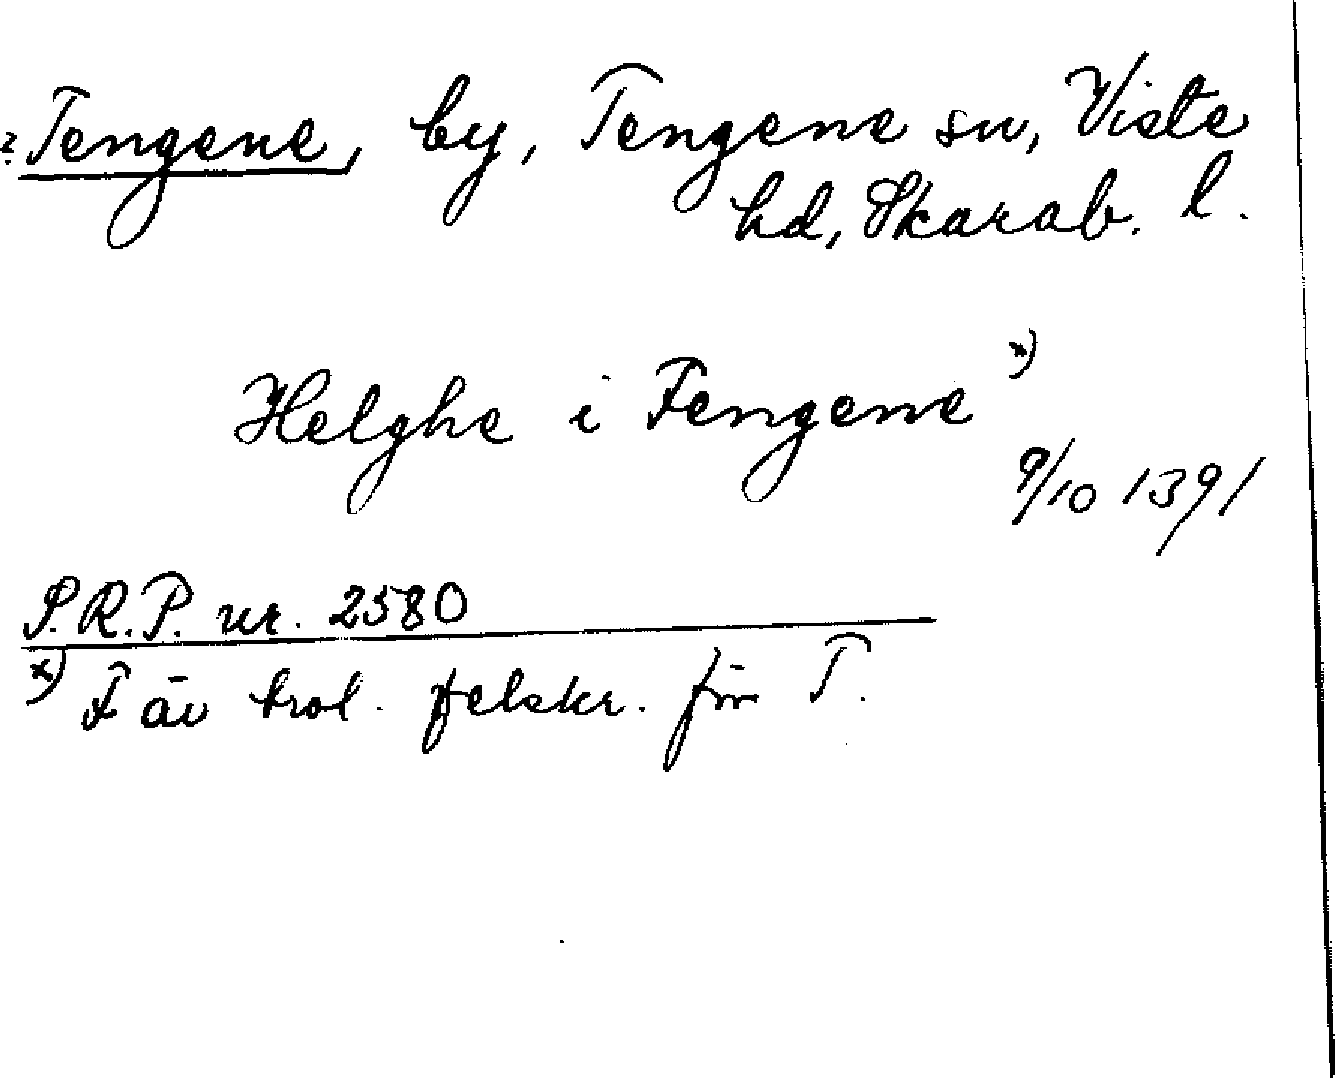 ? Tengene, by, Tengene sn, Viste
hd, Skarab. l.
Helghe i Fengene x)
9/10 1391
S.R.P. nr. 2580
x) F är trol. felskr. för T.